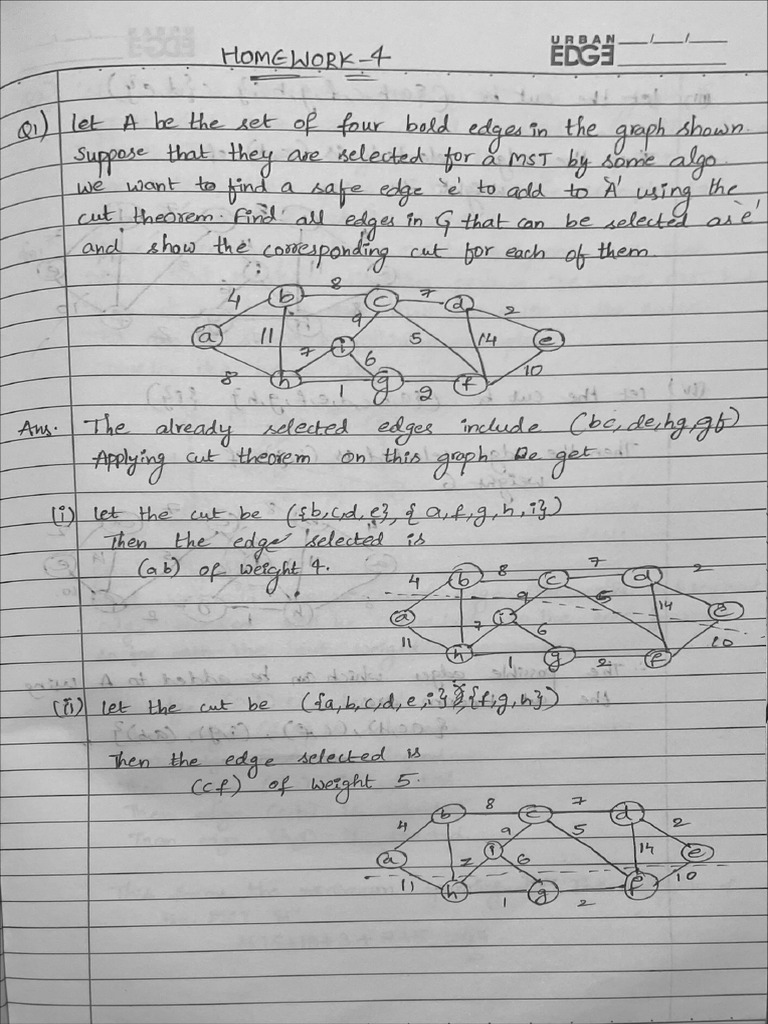 HOMEWORK-4
URBAN EDGE __/__/__
Q1) let A be the set of four bold edges in the graph shown.
Suppose that they are selected for a MST by some algo.
we want to find a safe edge 'e' to add to 'A' using the
cut theorem. Find all edges in G that can be selected as 'e'
and show the corresponding cut for each of them.
4 b 8 c 7 d 2
a 11 9 i 5 14 e
8 h 7 6 1 g 2 f 10
Ans. The already selected edges include (bc, de, hg, gf)
Applying cut theorem on this graph we get
(i) let the cut be ({b,c,d,e}, {a,f,g,h,i})
Then the edge selected is
(ab) of weight 4.
4 b 8 c 7 d 2
a 9 i 5 14 e
11 h 7 6 1 g 2 f 10
(ii) let the cut be ({a,b,c,d,e,i}, {f,g,h})
Then the edge selected is
(cf) of weight 5.
4 b 8 c 7 d 2
a 9 i 5 14 e
11 h 7 6 1 g 2 f 10